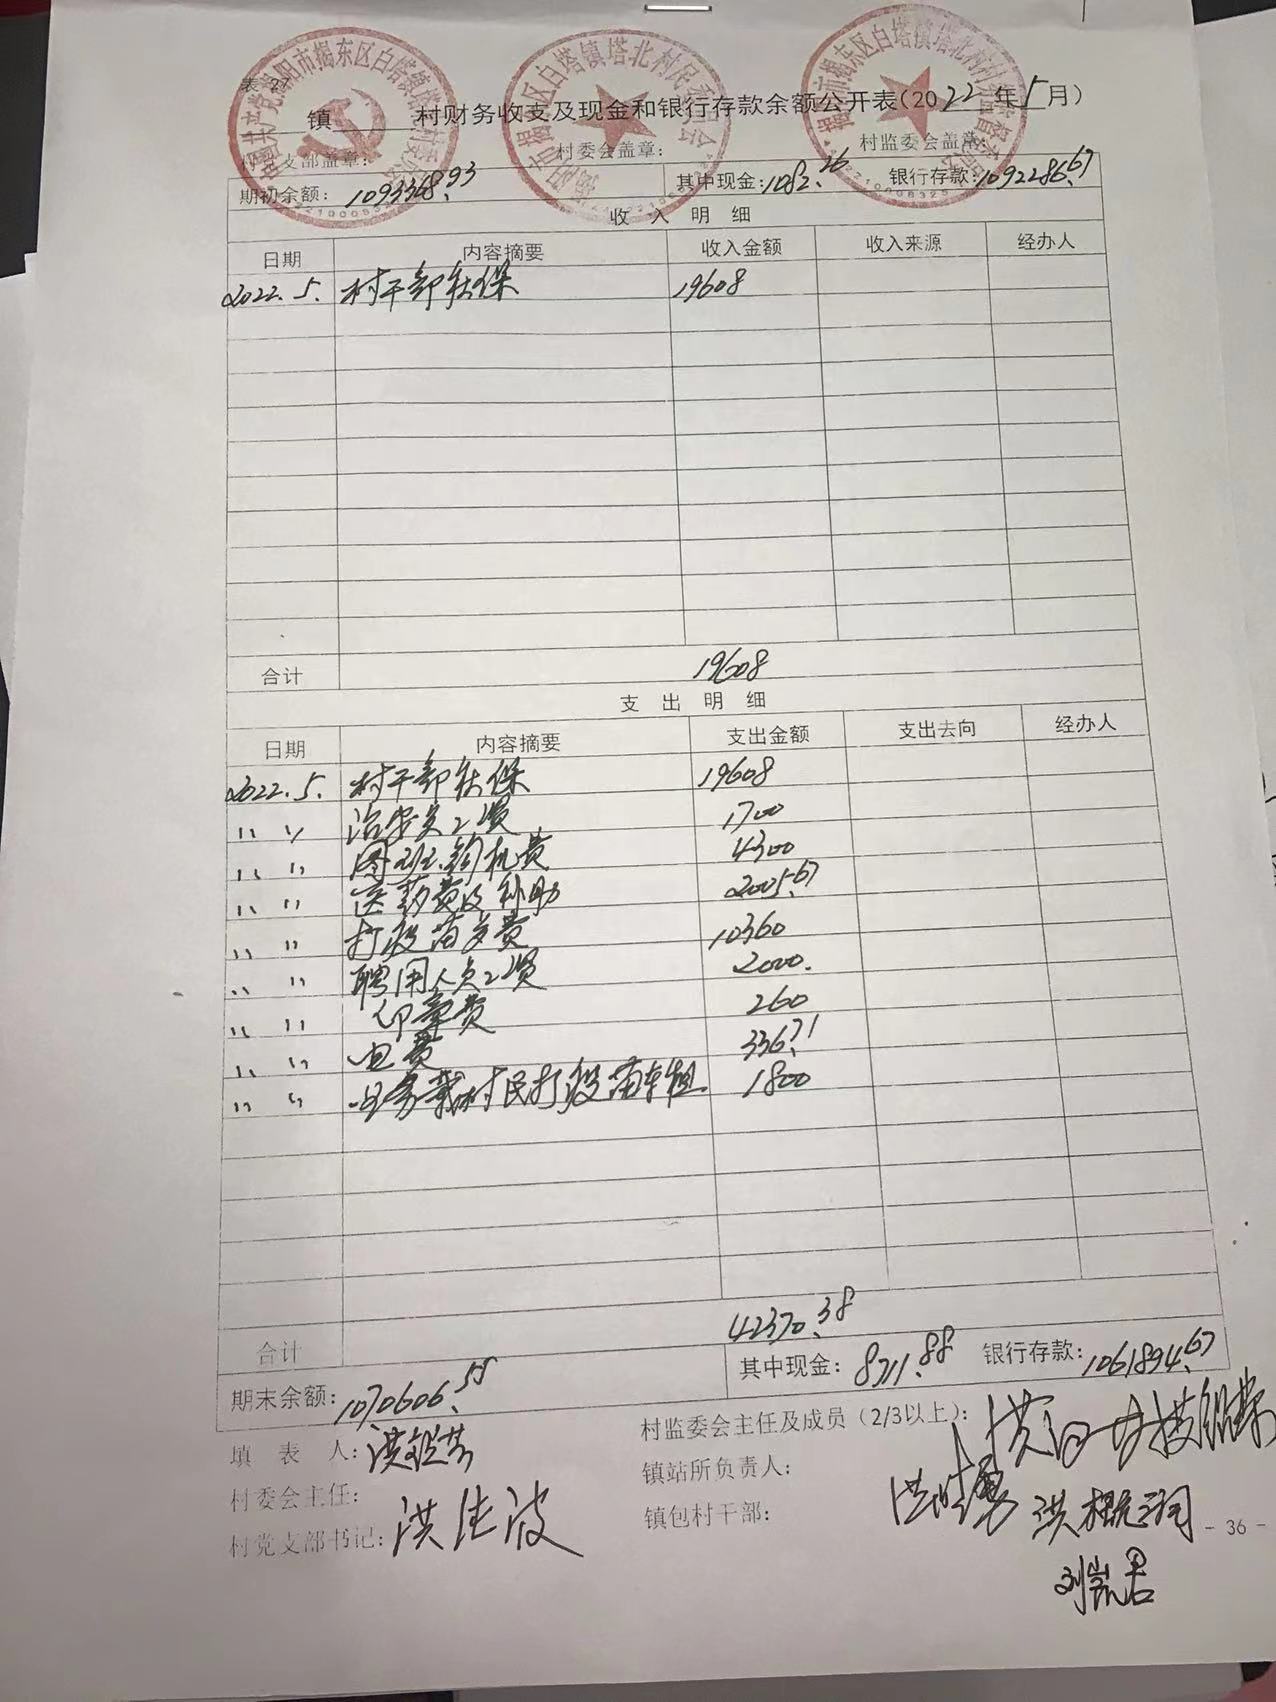 表 2
镇 村财务收支及现金和银行存款余额公开表(2022年5月)
村党支部盖章: 村委会盖章: 村监委会盖章:
期初余额: 1093368.93 其中现金:1082.26 银行存款:1092286.67
收 入 明 细
日期 内容摘要 收入金额 收入来源 经办人
2022.5. 村干部社保 19608
合计 19608
支 出 明 细
日期 内容摘要 支出金额 支出去向 经办人
2022.5. 村干部社保 19608
〃 〃 治安员工资 1700
〃 〃 钩机费 4300
〃 〃 医药费及补助 2005.67
〃 〃 打疫苗 费 10360
〃 〃 聘用人员工资 2000.
〃 〃 印章费 260
〃 〃 电费 336.71
〃 〃 载村民打疫苗车租 1800
合计 42370.38
期末余额: 1070606.55 其中现金: 8711.88 银行存款: 1061894.67
填 表 人: 洪
村监委会主任及成员(2/3以上):
村委会主任:
镇站所负责人:
村党支部书记: 洪 波
镇包村干部: 刘凯君
- 36 -